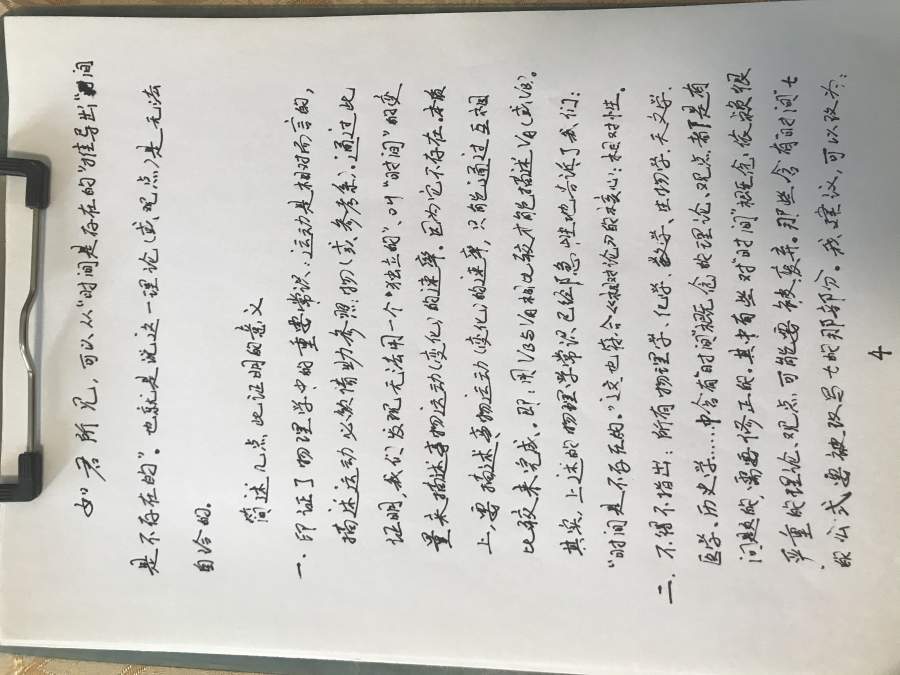 如君所见，可以从“时间是存在的”推导出“时间
是不存在的”。也就是说这一理论(或观点)是无法
自洽的。
简述几点此证明的意义
一．印证了物理学中的重要常识、运动是相对而言的，
描述运动必须借助参照物(或参考系)；通过此
证明，我们发现无法用一个“独立的”、叫“时间”的变
量来描述事物运动(变化)的速率。因为它不存在。本质
上，要描述事物运动(变化)的速率，只能通过互相
比较来完成。即：用VB与VA相比较才能描述VA(或VB)。
其实，上述的物理学常识已经隐性地告诉了我们：
“时间是不存在的。”这也符合《相对论》的核心：相对性。
二．不得不指出：所有物理学、化学、数学、生物学、天文学、
医学、历史学……中含有“时间”概念的理论、观点都是有
问题的，需要修正的。其中有些对“时间”概念依赖很
严重的理论、观点可能要被废弃。那些含有“时间”t
的公式要被改写t的那部分。我建议，可以改为：
4